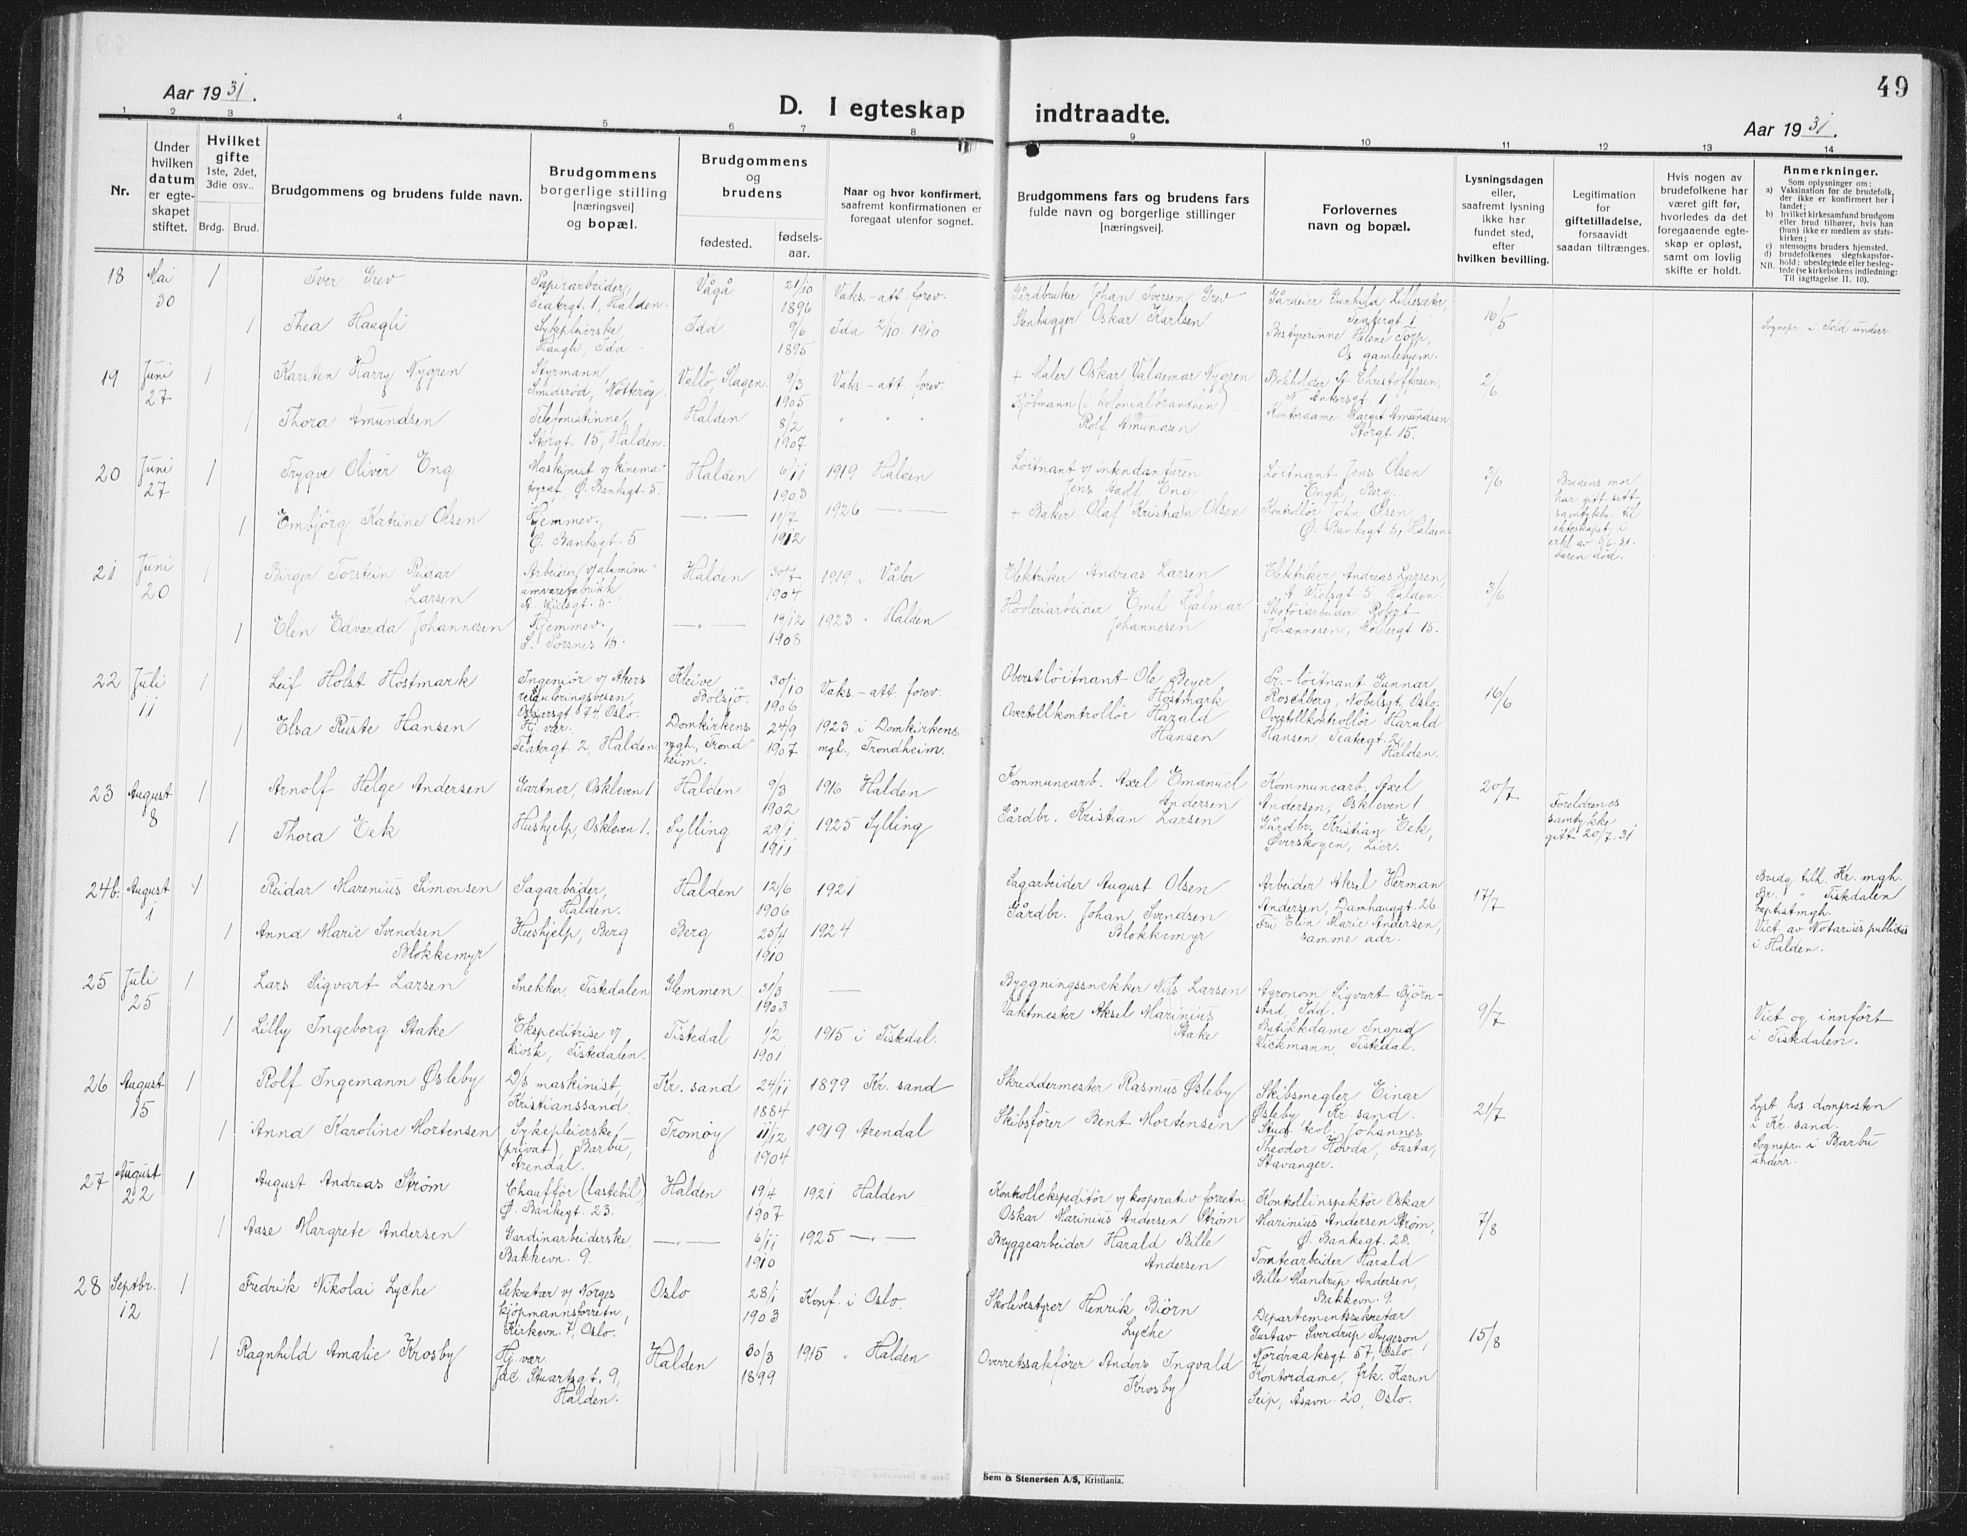 49
Aar 1931.
D. I egteskap indtraadte.
Aar 1931.
1 2 3 4 5 6 7 8 9 10 11 12 13 14
Nr.
Under
hvilken
datum
er egte-
skapet
stiftet.
Hvilket
gifte
1ste, 2det,
3die osv..
Brdg. Brud.
Brudgommens og brudens fulde navn.
Brudgommens
borgerlige stilling
[næringsvei]
og bopæl.
Brudgommens
og
brudens
fødested.
fødsels-
aar.
Naar og hvor konfirmert,
saafremt konfirmationen er
foregaat utenfor sognet.
Brudgommens fars og brudens fars
fulde navn og borgerlige stillinger
[næringsvei].
Forlovernes
navn og bopæl.
Lysningsdagen
eller,
saafremt lysning
ikke har
fundet sted,
efter
hvilken bevilling.
Legitimation
for
giftetilladelse,
forsaavidt
saadan tiltrænges.
Hvis nogen av
brudefolkene har
været gift før,
hvorledes da det
foregaaende egte-
skap er opløst,
samt om lovlig
skifte er holdt.
Anmerkninger.
Som oplysninger om:
a) Vaksination før de brudefolk,
der ikke er konfirmert her i
landet;
b) hvilket kirkesamfund brudgom
eller brud tilhører, hvis han
(hun) ikke er medlem av stats-
kirken;
c) utensogns bruders hjemsted.
d) brudefolkenes slegtskapsfor-
hold; ubeslegtede eller besleg-
tede (se kirkebokens indledning:
NB. Til iagttagelse II. 10).
18 Mai 30 1 Iver Grev
Papirarbeider,
Teatergt. 1, Halden.
Vågå 21/10 1896
Vaks.-att. forev.
Gårdbruker Johan Iversen Grev
Gårdeier Gunhild Lillesæter,
Teatergt. 1
16/5
1 Thea Haugli
Sykepleierske,
Haugli, Idd.
Idd 9/6 1895
Idd 2/10 1910
Stenhugger Oskar Karlsen
Bestyrerinne Helene Topp,
Os gamlehjem.
Sognepr. i Idd underr.
19 Juni 27 1 Karsten Harry Nygren
Styrmann
Smidsrød, Nøtterøy
Vallö Slagen. 9/3 1905
Vaks-att forev
+ Maler Oskar Valdemar Nygren
Bokholder A Christoffersen,
N. Ankersgt. 1
2/6
1 Thora Amundsen
Telefonistinne,
Storgt. 15, Halden.
Halden 8/2 1907
Kjöbmann (i kolonialbranchen)
Rolf Amundsen
Kontordame Margit Amundsen
Storgt 15.
20 Juni 27 1 Trygve Oliver Eng
Maskinist v/ kinema-
tograf, Ø. Bankegt. 5.
Halden 6/11 1903
1919 Halden
Löitnant v/ intendanturen
Jens Adf Eng
Löitnant Jens Olsen
Engh, Berg.
3/6
Brudens mor
har gitt sitt
samtykke til
ekteskapet i
erkl av 3/6.31.
Faren död.
1 Embjörg Katrine Olsen
Hjemmev.
Ø. Bankegt. 5
—"— 11/7 1912
1926 —"—
+ Baker Olaf Kristian Olsen
Kontrollör John Olsen
Ø. Bankegt 5, Halden
21 Juni 20 1 Birger Torstein Reidar
Larsen
Arbeider v/ alumini-
umvarefabrikk
A. Wielsgt. 5.
Halden 30/7 1904
1919 i Våler
Elektriker Andreas Larsen
Elektriker Andreas Larsen,
A Wielsgt 5 Halden.
3/6
1 Elen Edvarda Johannesen
Hjemmev.
S. Torsnes 15.
—"— 19/12 1908
1923 " Halden
Hövleriarbeider Emil Hjalmar
Johannesen
Skotöiarbeider Robert
Johannesen, Holbergt 15.
22 Juli 11 1 Leif Holst Höstmark
Ingeniør v/ Akers
reguleringsvesen,
Oskarsgt 74, Oslo.
Kleive
Bolsjö.
30/10 1906
Vaks-att forev.
Oberstlöitnant Ole Beyer
Höstmark
Pr.-löitnant Gunnar
Rosenberg, Nobelsgt, Oslo.
16/6
1 Elsa Ruste Hansen
Hj. vær.
Teatergt 2, Halden
Domkirkens
mgh., Trond-
heim.
24/9 1907
1923 i Domkirkens
mgh., Trondheim.
Overtollkontrollör Harald
Hansen
Overtollkontrollör Harald
Hansen Teatergt 2,
Halden.
23 August 8 1 Arnolf Helge Andersen
Gartner, Oskleven 1
Halden 9/3 1902
1916 Halden
Kommunearb. Axel Emanuel
Andersen
Kommunearb. Axel
Andersen, Oskleven 1
20/7
Foreldrenes
samtykke
gitt 20/7.31
1 Thora Eek
Hushjelp, Oskleven 1.
Sylling 29/1 1911
1925 Sylling
Gårdbr. Kristian Larsen
Gårdbr. Kristian Eek,
Øverskogen, Lier.
24b. August 1 1 Reidar Marenius Simonsen
Sagarbeider,
Halden.
Halden 12/6 1906
1921
Sagarbeider August Olsen
Arbeider Aksel Herman
Andersen, Damhauggt. 26
17/7
Brudg. tilh. Kr. mgh.
Br. " Tistedalen
baptistmgh.
Viet av Notarius publicus
i Halden.
1 Anna Marie Svendsen
Blokkemyr
Hushjelp, Berg
Berg 25/4 1910
1924
Gårdbr. Johan Svendsen
Blokkemyr
Fru Elin Marie Andersen,
samme adr.
25 Juli 25 1 Lars Sigvart Larsen
Snekker, Tistedalen
Glemmen 31/3 1903
—
Byggningssnekker Nils Larsen
Agronom Sigvart Björn-
stad, Idd.
9/7
Viet og innfört
i Tistedalen.
1 Lilly Ingeborg Stake
Ekspeditrise v/
kiosk, Tistedalen.
Tistedal 1/2 1901
1915 i Tistedal.
Vaktmester Aksel Marinius
Stake
Butikkdame Ingrid
Wickmann, Tistedal.
26 August 15 1 Rolf Ingemann Øsleby
D/s maskinist,
Kristianssand.
Kr. sand 24/11 1884
1899 Kr. sand
Skreddermester Rasmus Øsleby
Skibsmegler Einar
Øsleby, Kr sand.
21/7
Lyst hos domprosten
i Kr. sand.
Sognepr. i Barbu
underr.
1 Anna Karoline Mortensen
Sykepleierske,
(privat), Barbu,
Arendal.
Tromøy 11/12 1904
1919 Arendal
Skibsfører Bent Mortensen
Stud teol. Johannes
Theodor Hovda, Tasta,
Stavanger.
27 August 22 1 August Andreas Strøm
Chauffør (lastebil)
Ø. Bankegt. 23.
Halden 19/4 1907
1921 Halden
Kontrollekspeditör v/ kooperativ forretn.
Oskar Marinius Andersen Strøm
Kontrollinspektör Oskar
Marinius Andersen Strøm,
Ø. Bankegt. 23.
7/8
1 Aase Margrete Andersen
Gardinarbeiderske,
Bakkevn. 9.
—"— 6/11 1910
1925 —"—
Bryggearbeider Harald Bille
Andersen
Tomtearbeider Harald
Bille Mandrup Andersen,
Bakkevn. 9.
28 Septbr. 12 1 Fredrik Nikolai Lyche
Sekretær v/ Norges
kjøpmannsforretn,
Kirkevn. 7, Oslo.
Oslo 28/1 1903
Konf. i Oslo.
Skolebestyrer Henrik Biörn
Lyche
Departementssekretær
Gustav Sverdrup Thygeson,
Nordraaksgt 57, Oslo.
15/8
1 Ragnhild Amalie Krosby
Hj. vær.
Jac. Stuartsgt. 9,
Halden.
Halden 30/3 1899
1915 " Halden
Overretssakfører Anders Ingvald
Krosby
Kontordame, frk. Karin
Seip, Åsavn. 20, Oslo.
Sem & Stenersen A/S, Kristiania.